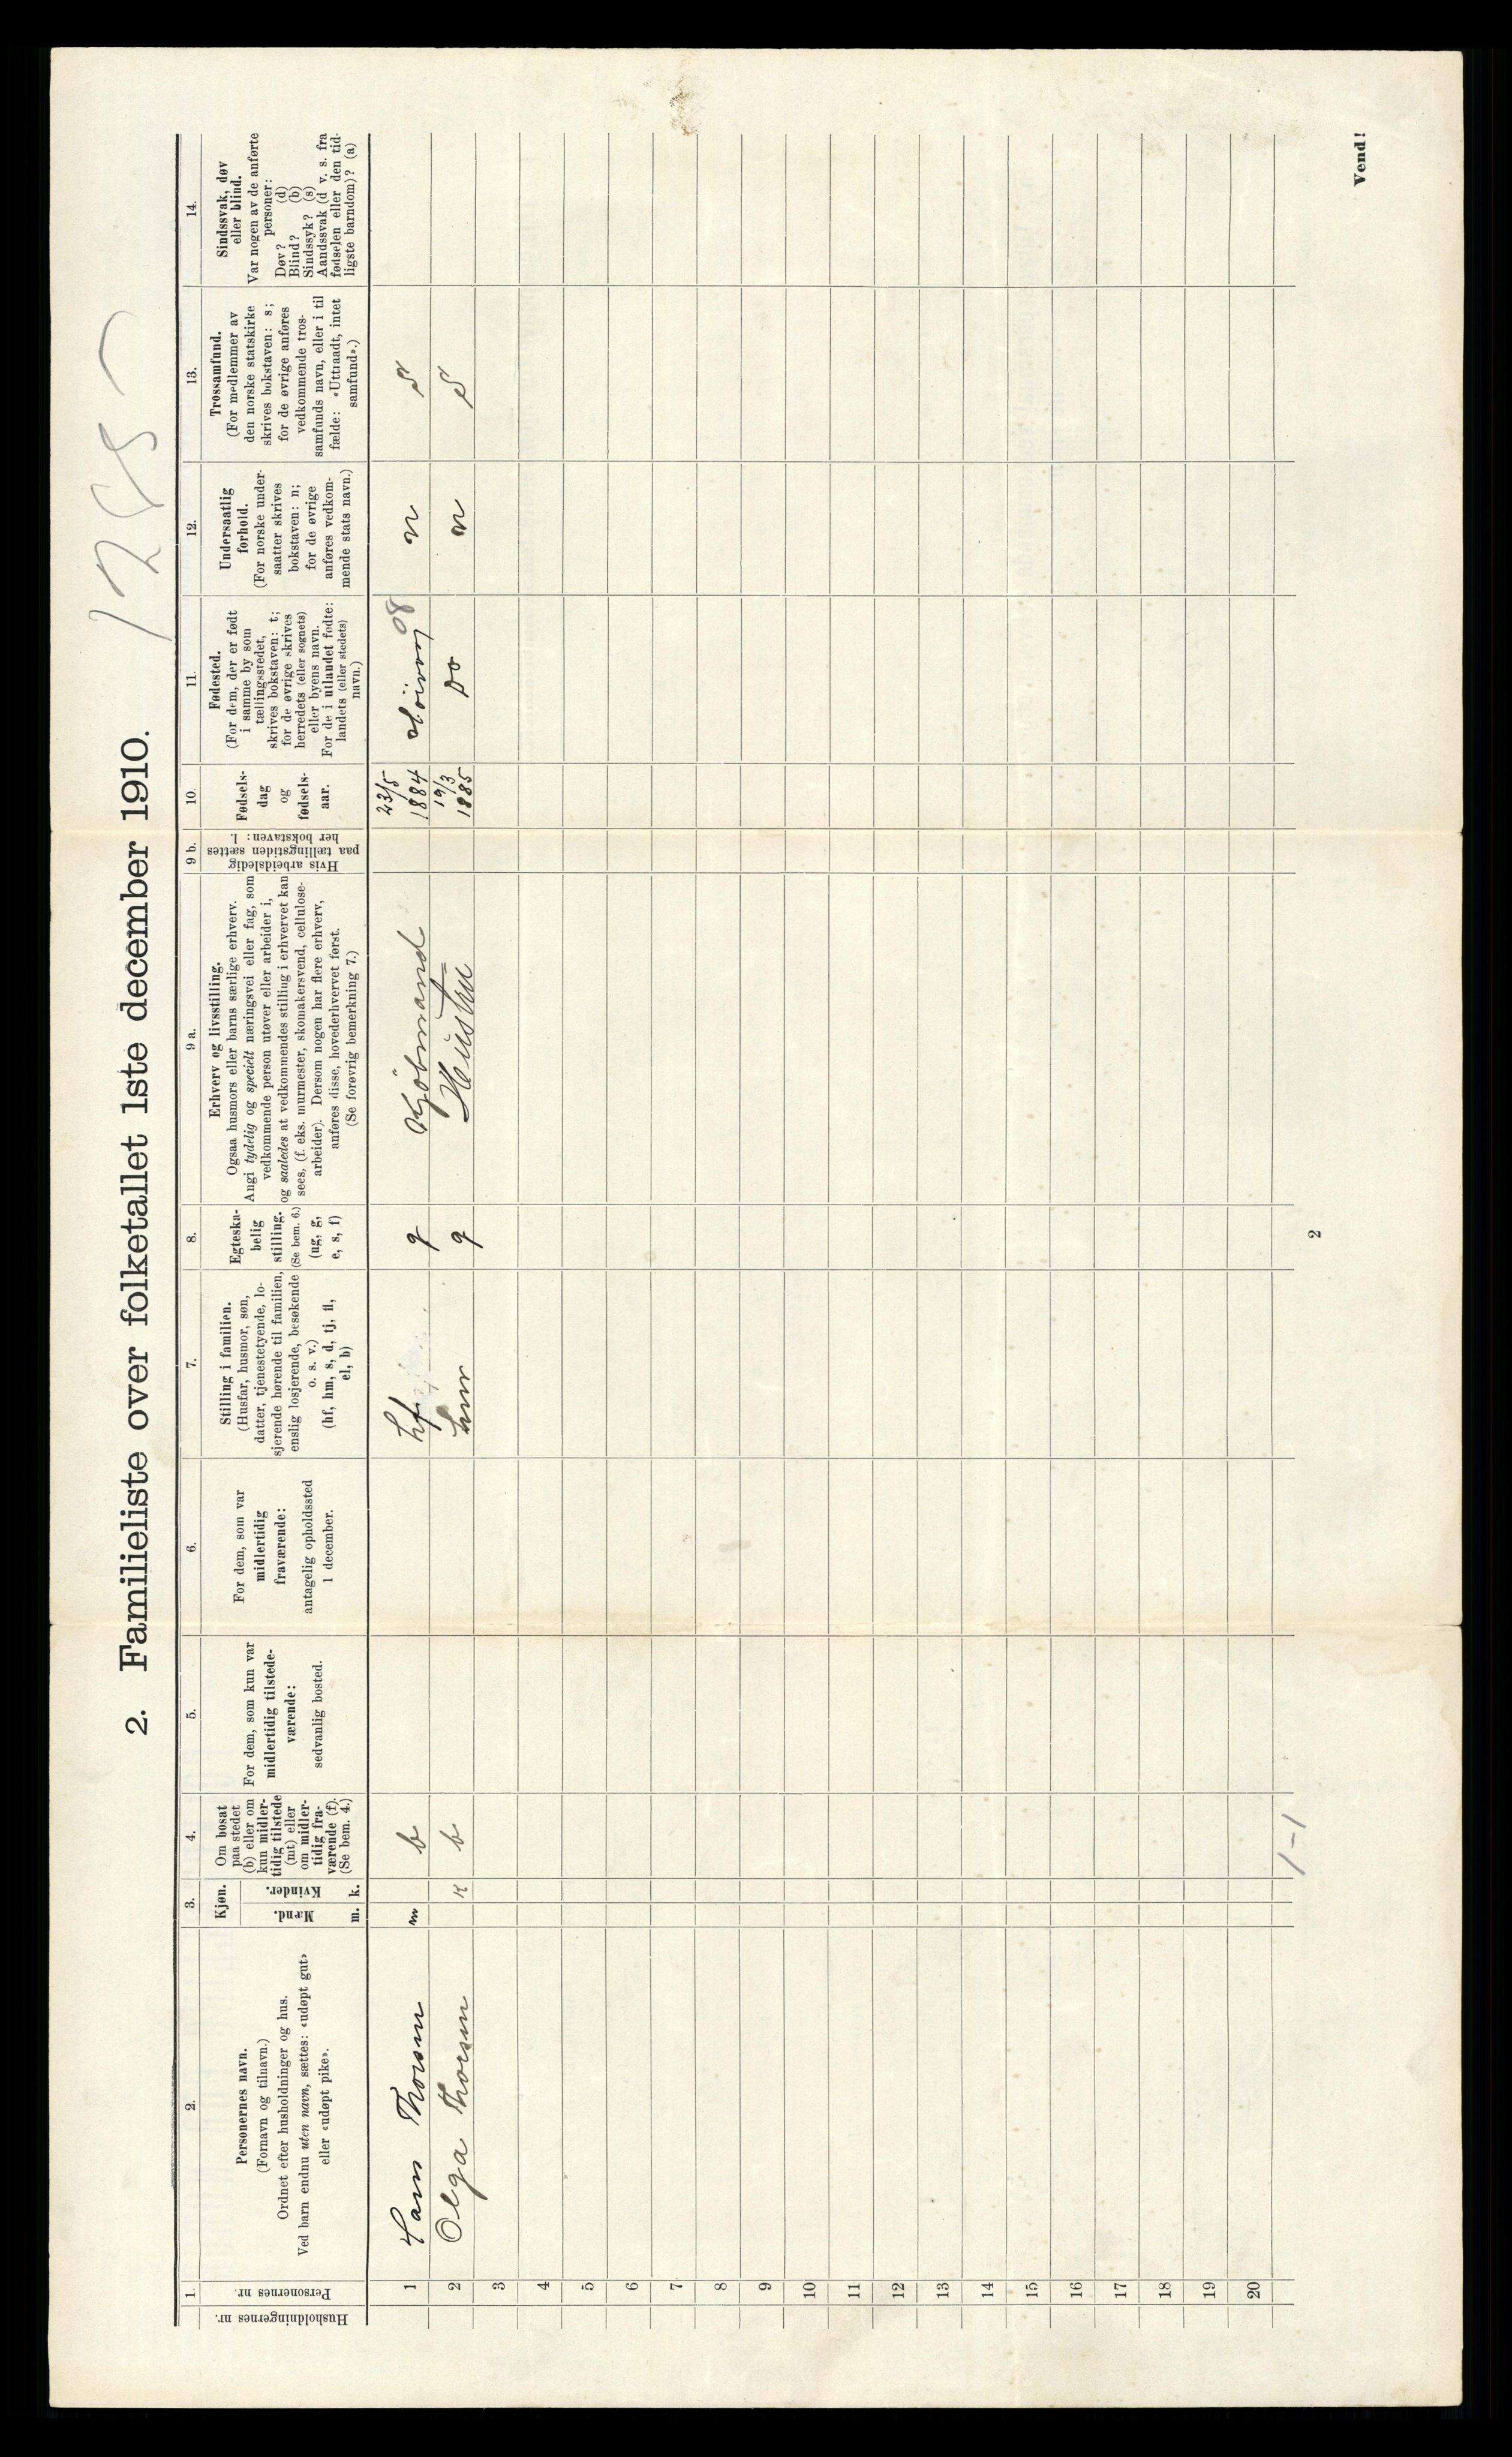 1285
2. Familieliste over folketallet 1ste december 1910.
Husholdningernes nr.
1.
Personernes nr.
2.
Personernes navn.
(Fornavn og tilnavn.)
Ordnet efter husholdninger og hus.
Ved barn endnu uten navn, sættes: «udøpt gut»
eller «udøpt pike».
3.
Kjøn.
Mænd.
Kvinder.
m. k.
4.
Om bosat
paa stedet
(b) eller om
kun midler-
tidig tilstede
(mt) eller
om midler-
tidig fra-
værende (f).
(Se bem. 4.)
5.
For dem, som kun var
midlertidig tilstede-
værende:
sedvanlig bosted.
6.
For dem, som var
midlertidig
fraværende:
antagelig opholdssted
1 december.
7.
Stilling i familien.
(Husfar, husmor, søn,
datter, tjenestetyende, lo-
sjerende hørende til familien,
enslig losjerende, besøkende
o. s. v.)
(hf, hm, s, d, tj, fl,
el, b)
8.
Egteska-
belig
stilling.
(Se bem. 6.)
(ug, g,
e, s, f)
9 a.
Erhverv og livsstilling.
Ogsaa husmors eller barns særlige erhverv.
Angi tydelig og specielt næringsvei eller fag, som
vedkommende person utøver eller arbeider i,
og saaledes at vedkommendes stilling i erhvervet kan
sees, (f. eks. murmester, skomakersvend, cellulose-
arbeider). Dersom nogen har flere erhverv,
anføres disse, hovederhvervet først.
(Se forøvrig bemerkning 7.)
9 b.
Hvis arbeidsledig
paa tællingstiden sættes
her bokstaven: l.
10.
Fødsels-
dag
og
fødsels-
aar.
11.
Fødested.
(For dem, der er født
i samme by som
tællingsstedet,
skrives bokstaven: t;
for de øvrige skrives
herredets (eller sognets)
eller byens navn.
For de i utlandet fødte:
landets (eller stedets)
navn.)
12.
Undersaatlig
forhold.
(For norske under-
saatter skrives
bokstaven: n;
for de øvrige
anføres vedkom-
mende stats navn.)
13.
Trossamfund.
(For medlemmer av
den norske statskirke
skrives bokstaven: s;
for de øvrige anføres
vedkommende tros-
samfunds navn, eller i til
fælde: «Uttraadt, intet
samfund».)
14.
Sindssvak, døv
eller blind.
Var nogen av de anførte
personer:
Døv? (d)
Blind? (b)
Sindssyk? (s)
Aandssvak (d v. s. fra
fødselen eller den tid-
ligste barndom)? (a)
1 Hans Thorsen m b hf g Kjöbmand 23/5 1884 08 n S
2 Olga Thorsen k b hm g Hustru 19/3 1885 Do n S
3
4
5
6
7
8
9
10
11
12
13
14
15
16
17
18
19
20
1-1
2
Vend!